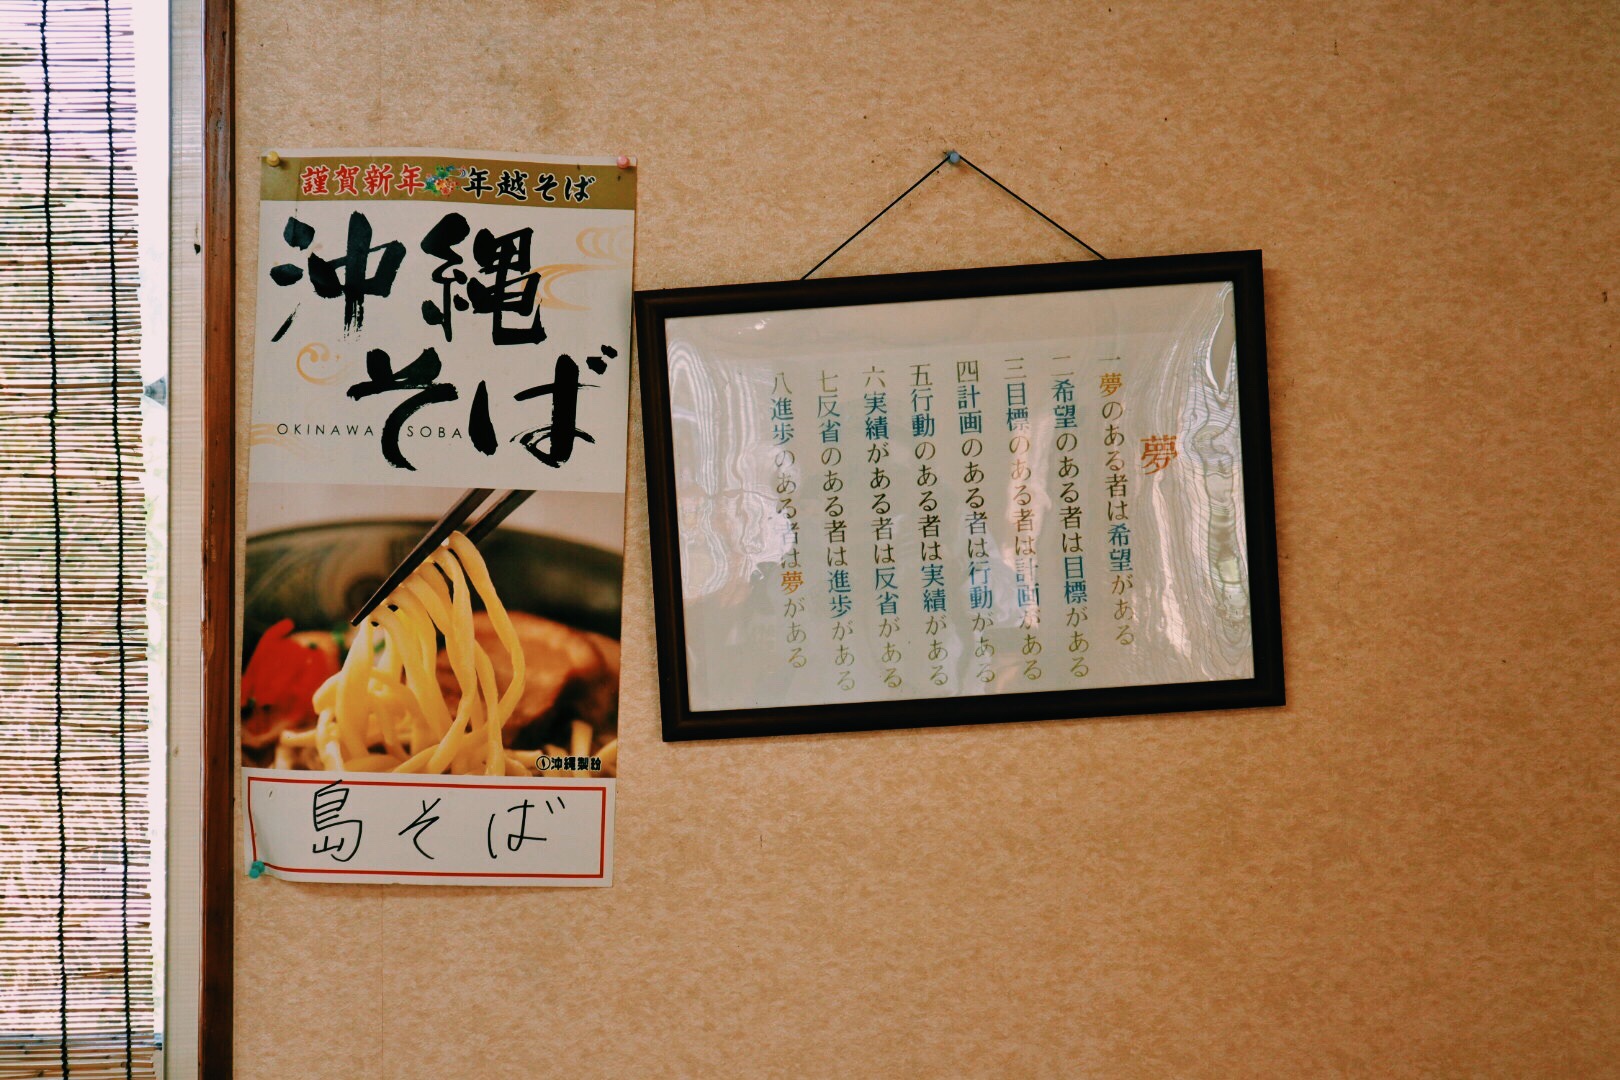 謹賀新年 年越そば
沖縄
そば
OKINAWA SOBA
沖縄製粉
島そば
夢
一夢のある者は希望がある
二希望のある者は目標がある
三目標のある者は計画がある
四計画のある者は行動がある
五行動のある者は実績がある
六実績がある者は反省がある
七反省のある者は進歩がある
八進歩のある者は夢がある